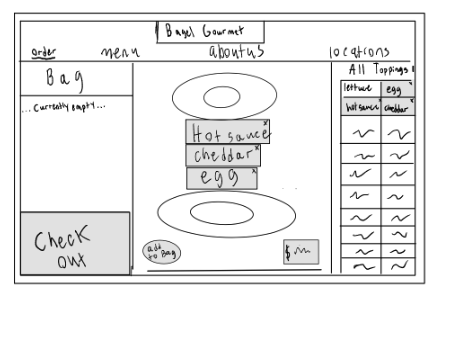 Bagel Gourmet
order menu about us locations
Bag
... Currently empty...
Check
out
Hot sauce x
cheddar x
egg x
add
to Bag
$
All Toppings
lettuce egg
hot sauce cheddar